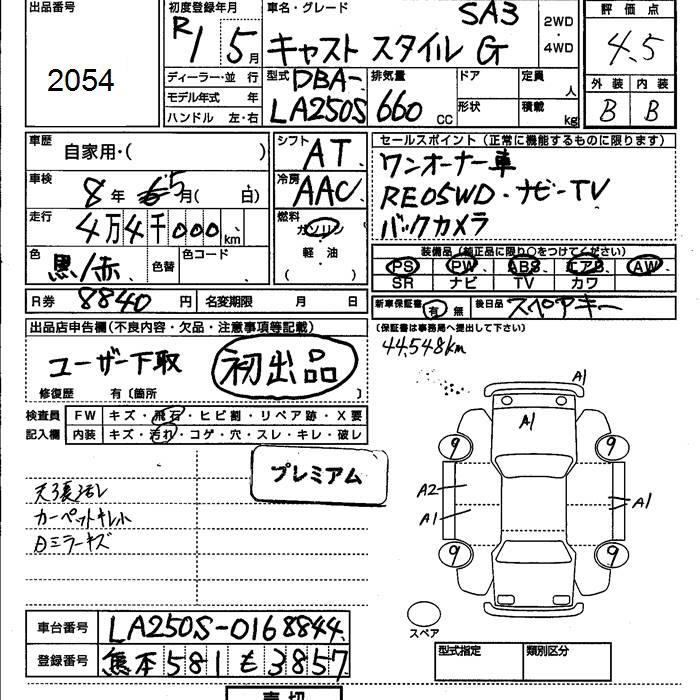 出品番号
2054
初度登録年月
R1 5月
車名・グレード
SA3
キャスト スタイル G
2WD
・
4WD
評価点
4.5
外装 内装
B B
ディーラー・並 行
モデル年式 年
ハンドル 左・右
型式
DBA-
LA250S
排気量
660 CC
ドア
形状
定員 人
積載 kg
車歴
自家用・( )
車検
8年 5月( 日)
走行
4万4千000km
色
黒/赤
色替
色コード
R券 8840円
名変期限 月 日
シフト
AT
冷房
AAC
燃料
ガソリン
・
軽・油
( )
セールスポイント (正常に機能するものに限ります)
ワンオーナー車
RE05WD・ナビ-TV
バックカメラ
装備品 (純正品に限り○をつけてください)
PS PW ABS エアB AW
SR ナビ TV カワ
新車保証書 有 無
後日品 スペアキー
(保証書は事務局へ提出して下さい)
44,548km
出品店申告欄(不良内容・欠品・注意事項等記載)
ユーザー下取 初出品
修復歴 有〔箇所 〕
検査員
記入欄
FW キズ・飛石・ヒビ割・リペア跡・X要
内装 キズ・汚れ・コゲ・穴・スレ・キレ・破レ
プレミアム
天張汚レ
カーペットキレ小
ミラーキズ
A1
A1
9 9
A2
A1
A1
9 9
スペア
車台番号 LA250S-0168844
登録番号 熊本581も3857
型式指定 類別区分
売切